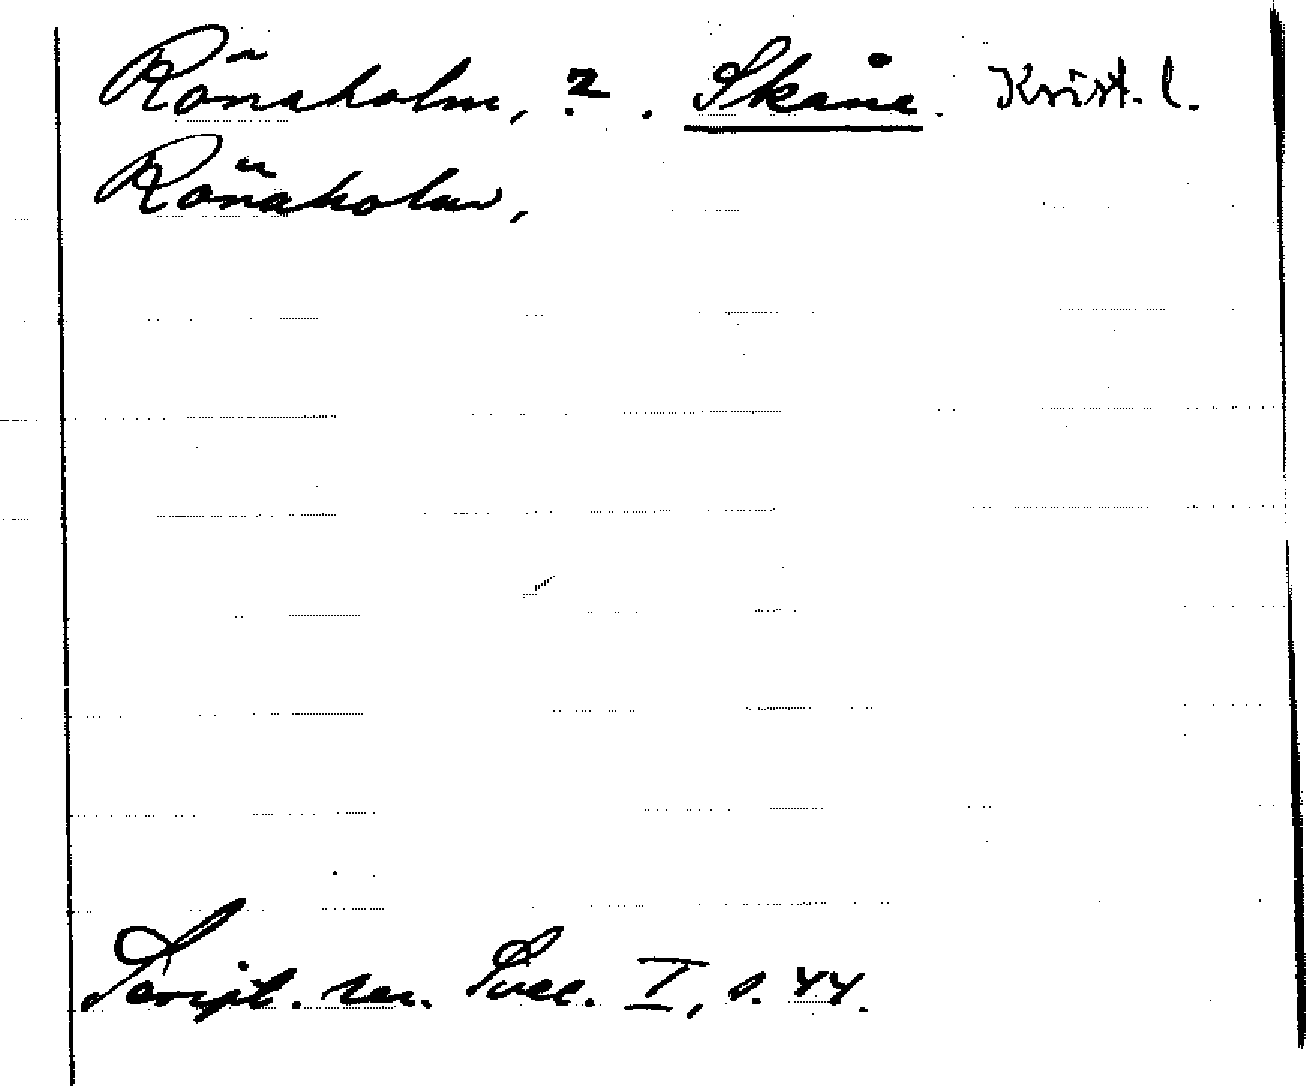 Rönaholm, ?. Skåne. Krist. l.
Rönaholm,
Script. rer. Suec. I, s. 44.